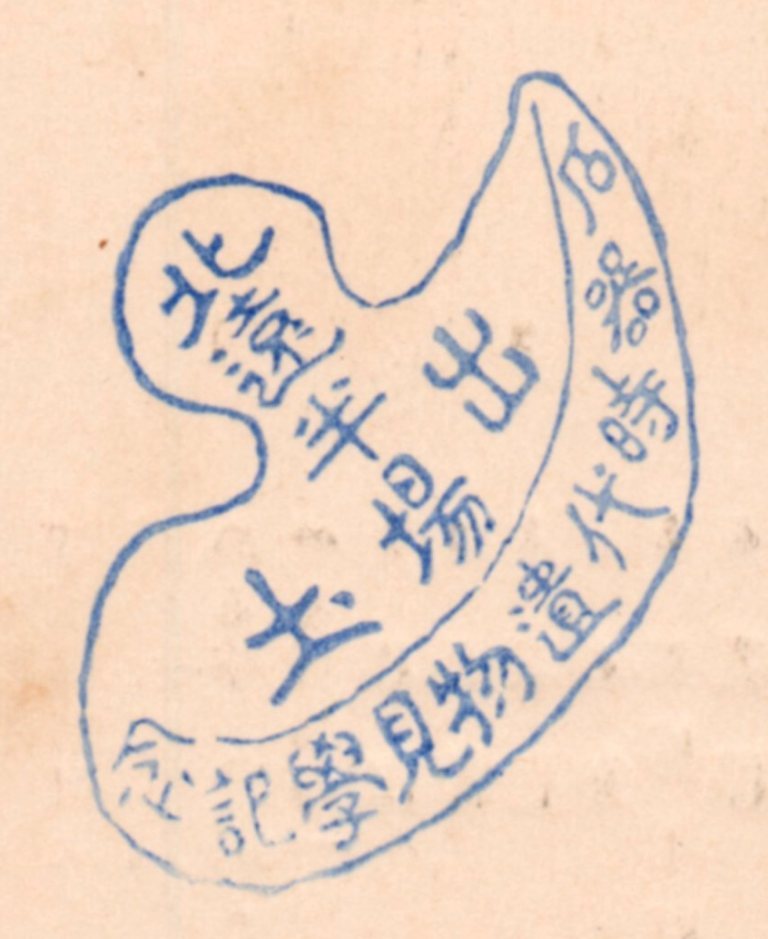 北遠半場
出土
石器時代遺物見學記念